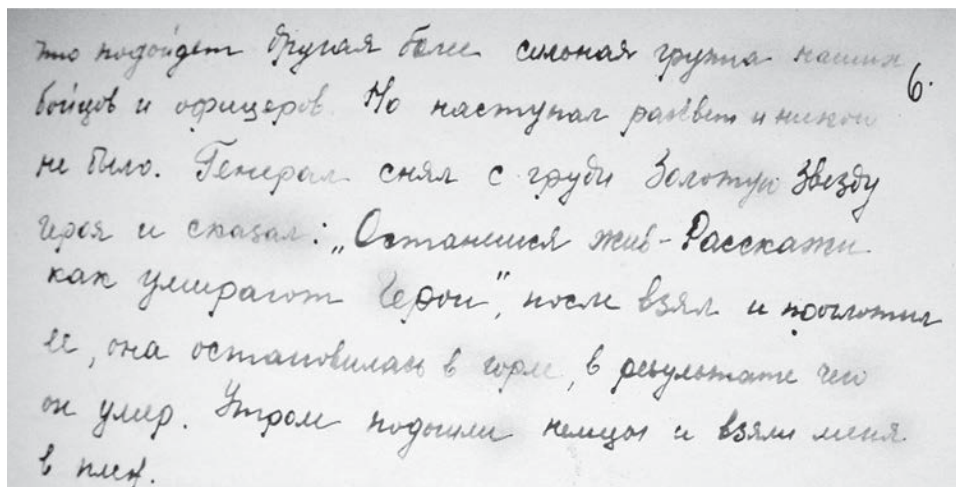 что подойдет другая более сильная группа наших
6.
бойцов и офицеров. Но наступал рассвет и никого
не было. Генерал снял с груди Золотую Звезду
Героя и сказал: „Останешся жив - Расскажи
как умирают Герои", после взял и проглотил
ее, она остановилась в горле, в результате чего
он умер. Утром подошли немцы и взяли меня
в плен.